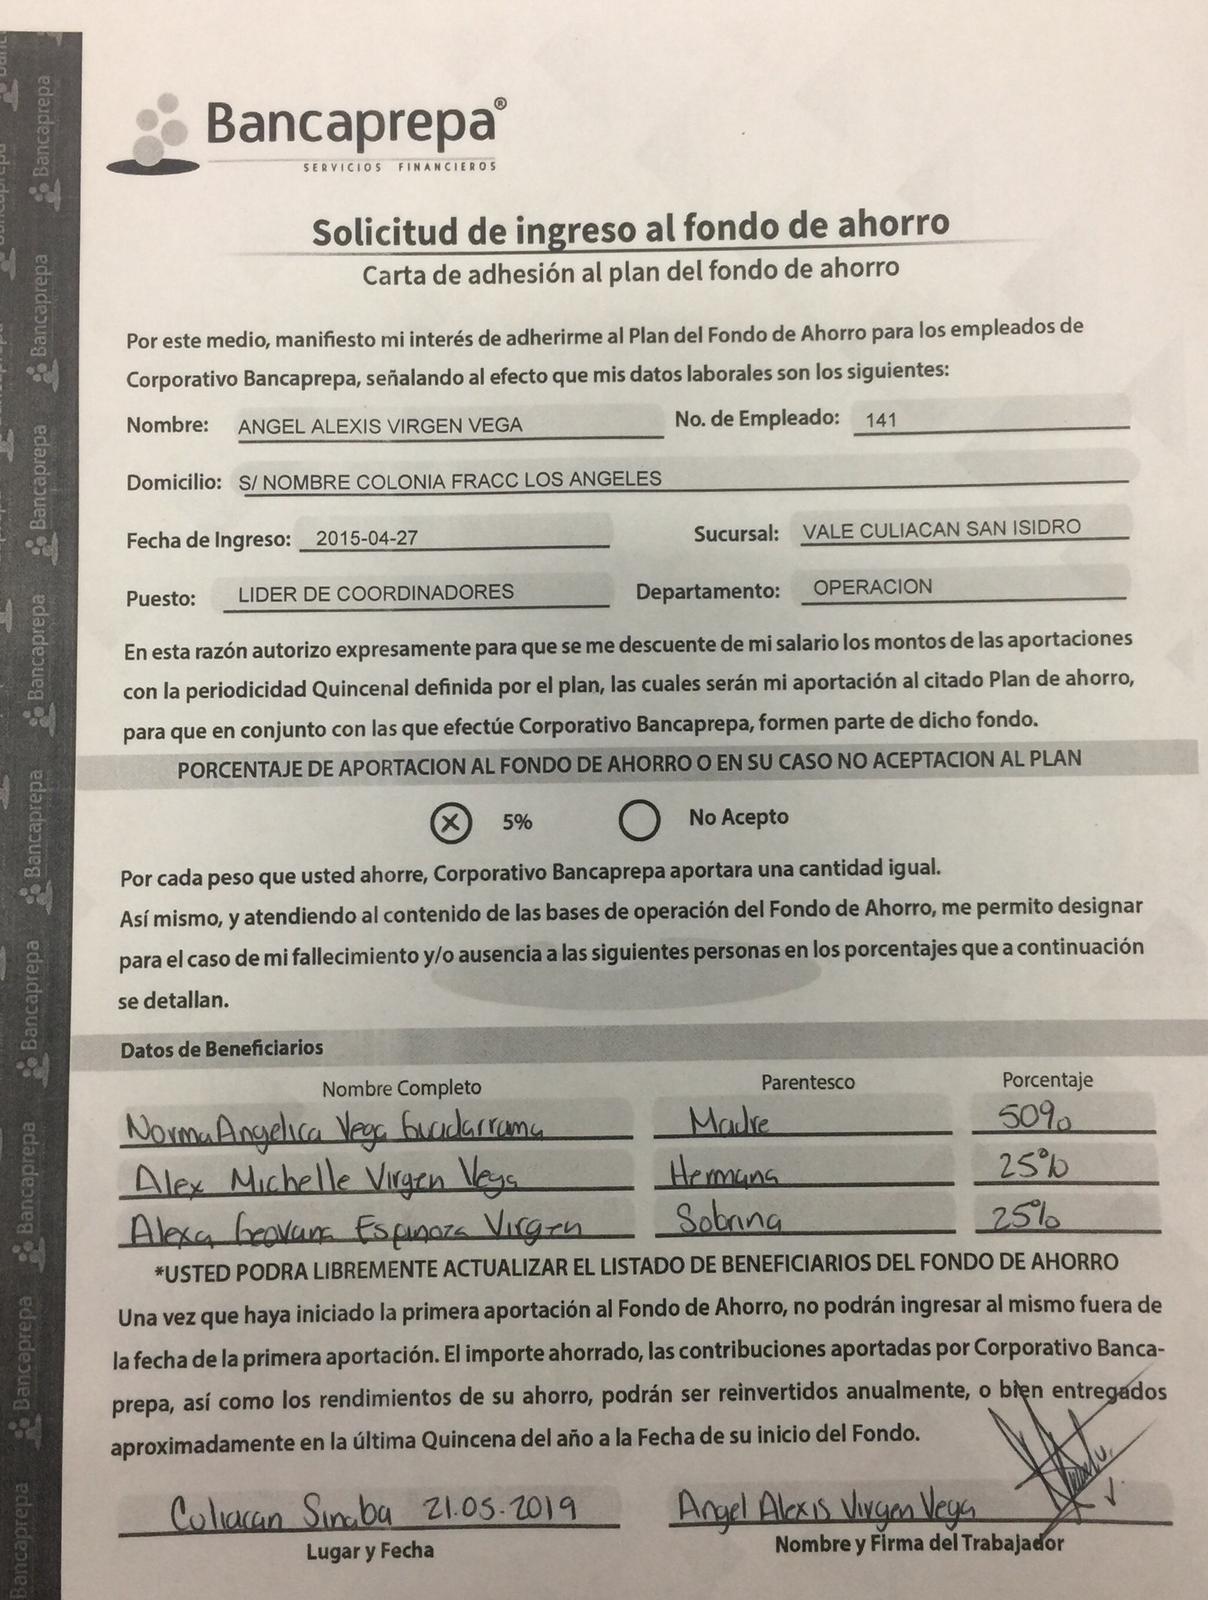 Bancaprepa®
SERVICIOS FINANCIEROS
Solicitud de ingreso al fondo de ahorro
Carta de adhesión al plan del fondo de ahorro
Por este medio, manifiesto mi interés de adherirme al Plan del Fondo de Ahorro para los empleados de
Corporativo Bancaprepa, señalando al efecto que mis datos laborales son los siguientes:
Nombre: ANGEL ALEXIS VIRGEN VEGA No. de Empleado: 141
Domicilio: S/ NOMBRE COLONIA FRACC LOS ANGELES
Fecha de Ingreso: 2015-04-27 Sucursal: VALE CULIACAN SAN ISIDRO
Puesto: LIDER DE COORDINADORES Departamento: OPERACION
En esta razón autorizo expresamente para que se me descuente de mi salario los montos de las aportaciones
con la periodicidad Quincenal definida por el plan, las cuales serán mi aportación al citado Plan de ahorro,
para que en conjunto con las que efectúe Corporativo Bancaprepa, formen parte de dicho fondo.
PORCENTAJE DE APORTACION AL FONDO DE AHORRO O EN SU CASO NO ACEPTACION AL PLAN
X 5% No Acepto
Por cada peso que usted ahorre, Corporativo Bancaprepa aportara una cantidad igual.
Así mismo, y atendiendo al contenido de las bases de operación del Fondo de Ahorro, me permito designar
para el caso de mi fallecimiento y/o ausencia a las siguientes personas en los porcentajes que a continuación
se detallan.
Datos de Beneficiarios
Nombre Completo Parentesco Porcentaje
Norma Angelica Vega Guadarrama Madre 50%
Alex Michelle Virgen Vega Hermana 25%
Alexa Geovana Espinoza Virgen Sobrina 25%
*USTED PODRA LIBREMENTE ACTUALIZAR EL LISTADO DE BENEFICIARIOS DEL FONDO DE AHORRO
Una vez que haya iniciado la primera aportación al Fondo de Ahorro, no podrán ingresar al mismo fuera de
la fecha de la primera aportación. El importe ahorrado, las contribuciones aportadas por Corporativo Banca-
prepa, así como los rendimientos de su ahorro, podrán ser reinvertidos anualmente, o bien entregados
aproximadamente en la última Quincena del año a la Fecha de su inicio del Fondo.
Culiacan Sinaloa 21.05.2019 Angel Alexis Virgen Vega
Lugar y Fecha Nombre y Firma del Trabajador